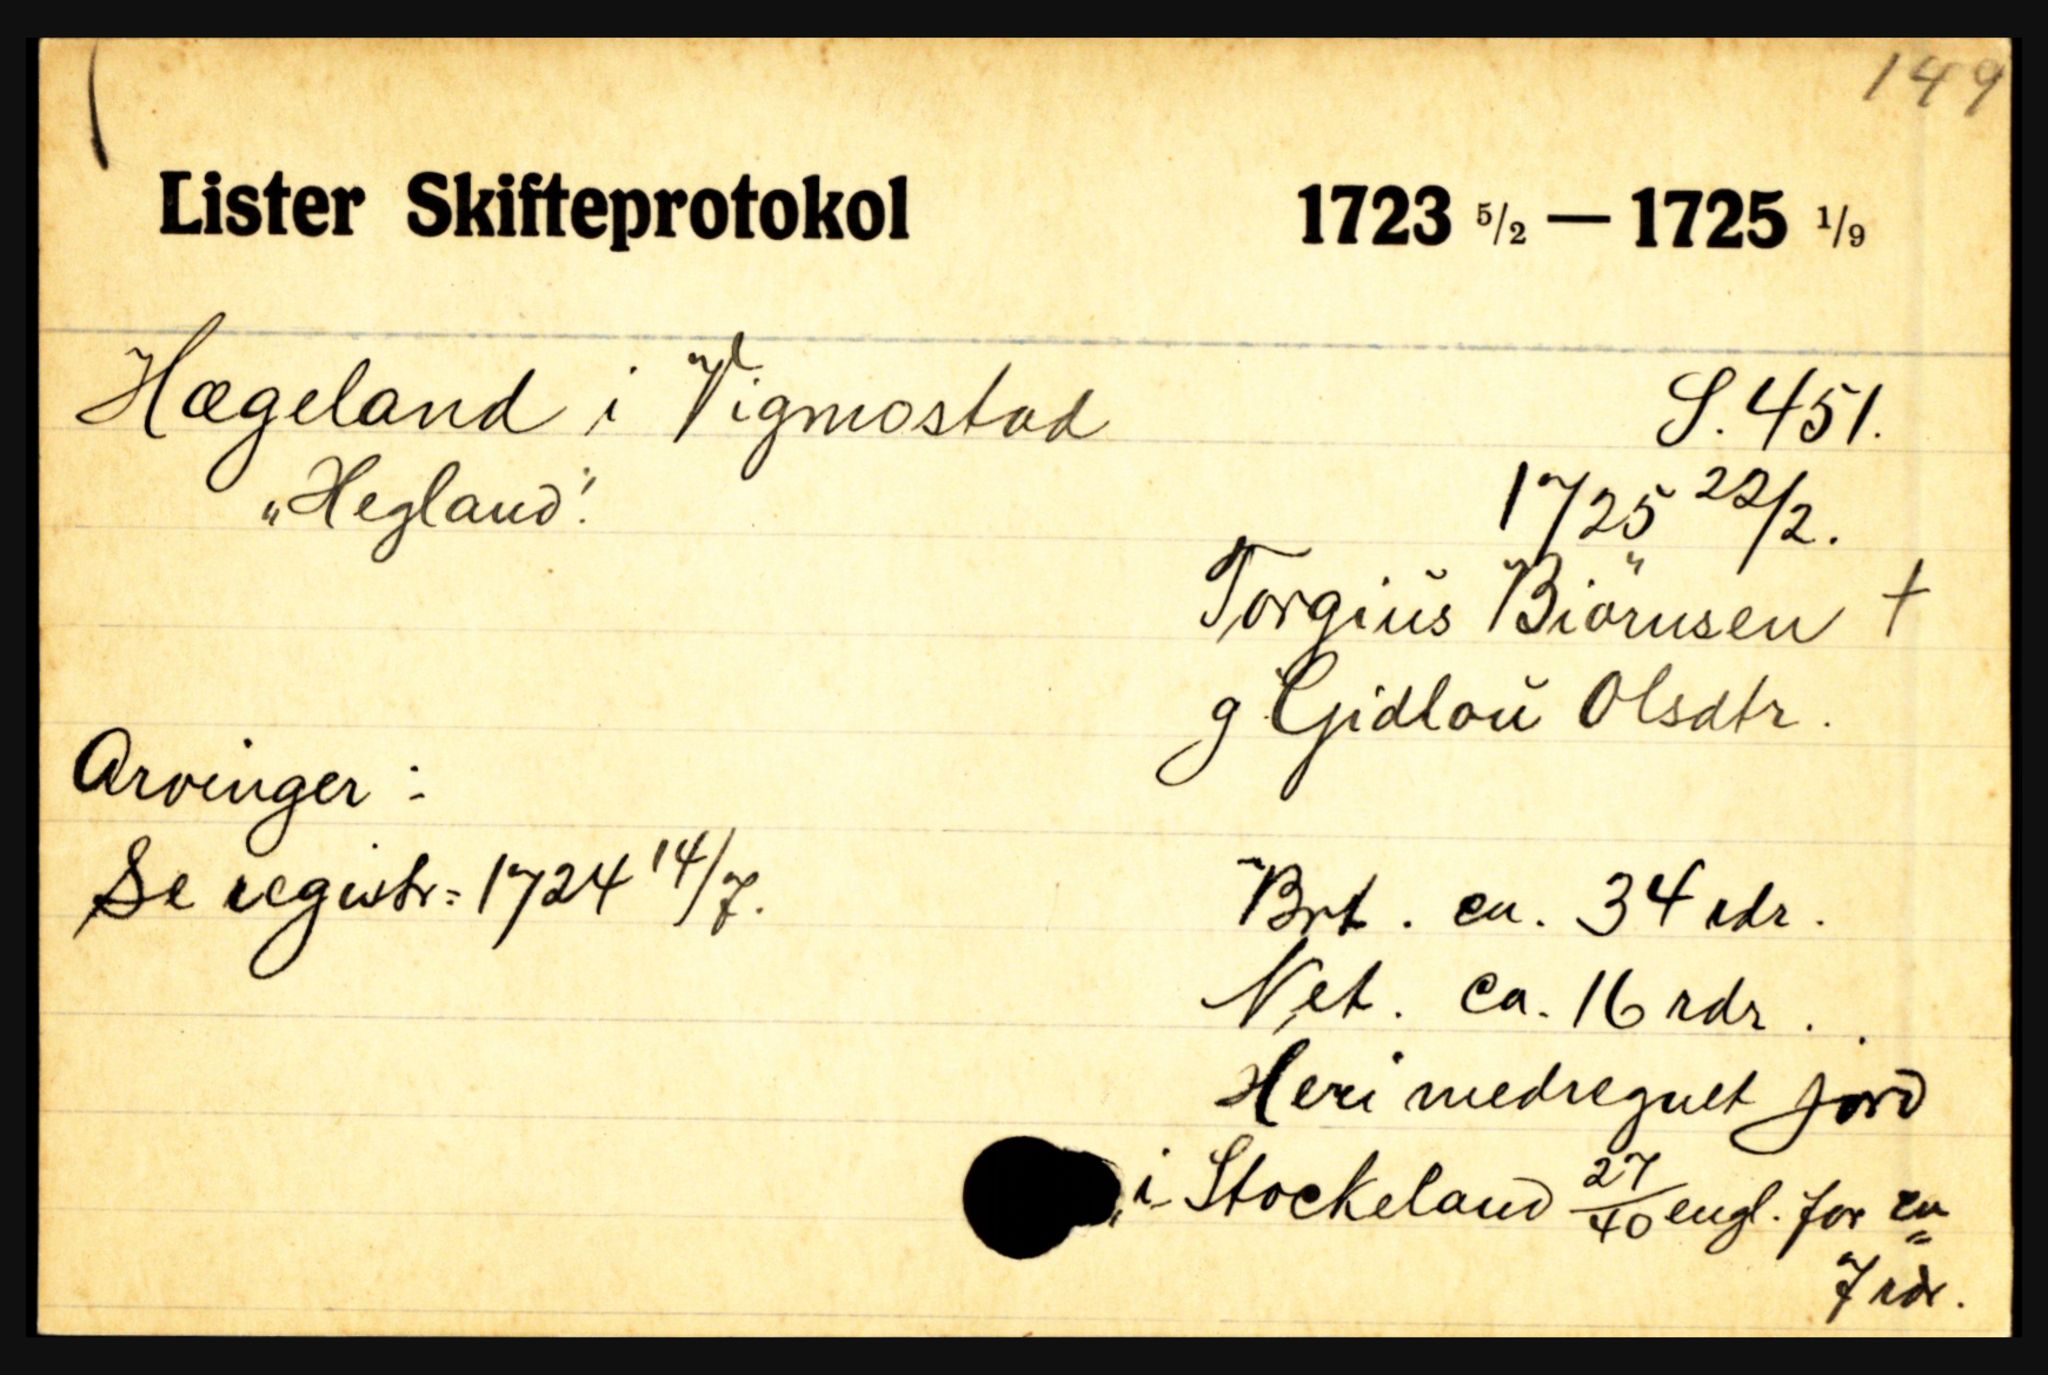 149
Lister Skifteprotokol 1723 5/2 — 1725 1/9
Hægeland i Vigmostad S. 451.
„Hegland". 1725 22/2.
Torgiŭs Biörnsen +
g Gidloŭ Olsdtr.
Arvinger:
Se registr: 1724 14/7.
Brt. ca. 34 rdr.
Net. ca. 16 rdr.
Heri medregnet jord
i Stockeland 27/40 engl. for ca
7 rdr.